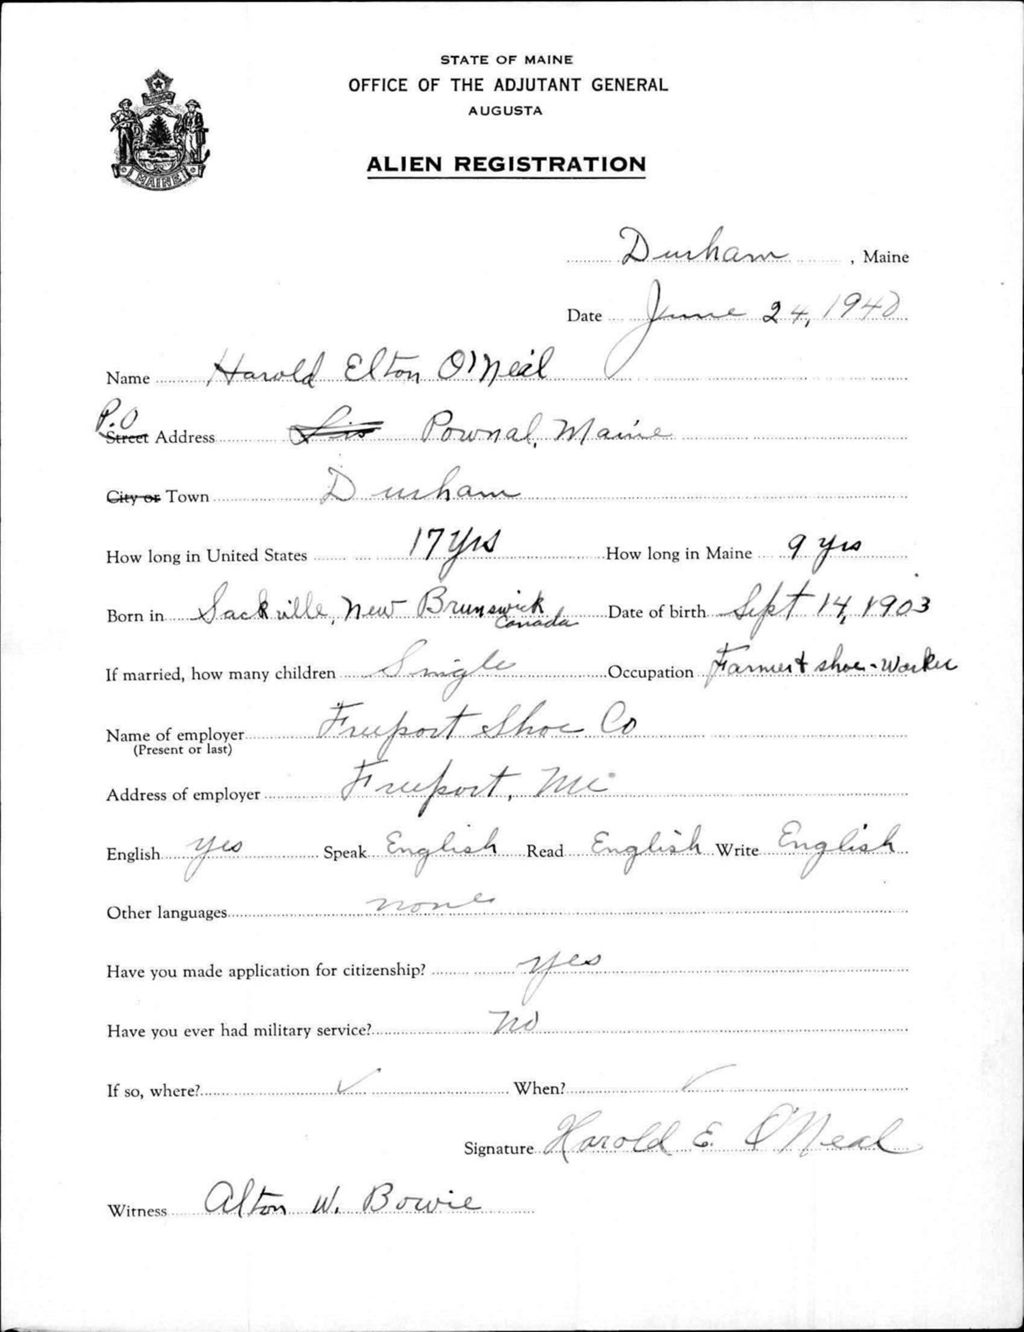 STATE OF MAINE
OFFICE OF THE ADJUTANT GENERAL
AUGUSTA
ALIEN REGISTRATION
MAINE
Durham, Maine
Date June 24, 1940
Name Harold Elton O'Neal
P.O
Street Address Pownal, Maine
City or Town Durham
How long in United States 17 yrs How long in Maine 9 yrs
Born in Sackville, New Brunswick Canada Date of birth Sept 14, 1903
If married, how many children Single Occupation Farmer & shoe-Worker
Name of employer Freeport Shoe Co
(Present or last)
Address of employer Freeport, Me
English yes Speak English Read English Write English
Other languages none
Have you made application for citizenship? yes
Have you ever had military service? No
If so, where? ✓ When? ✓
Signature Harold E. O'Neal
Witness Alton W. Bowie